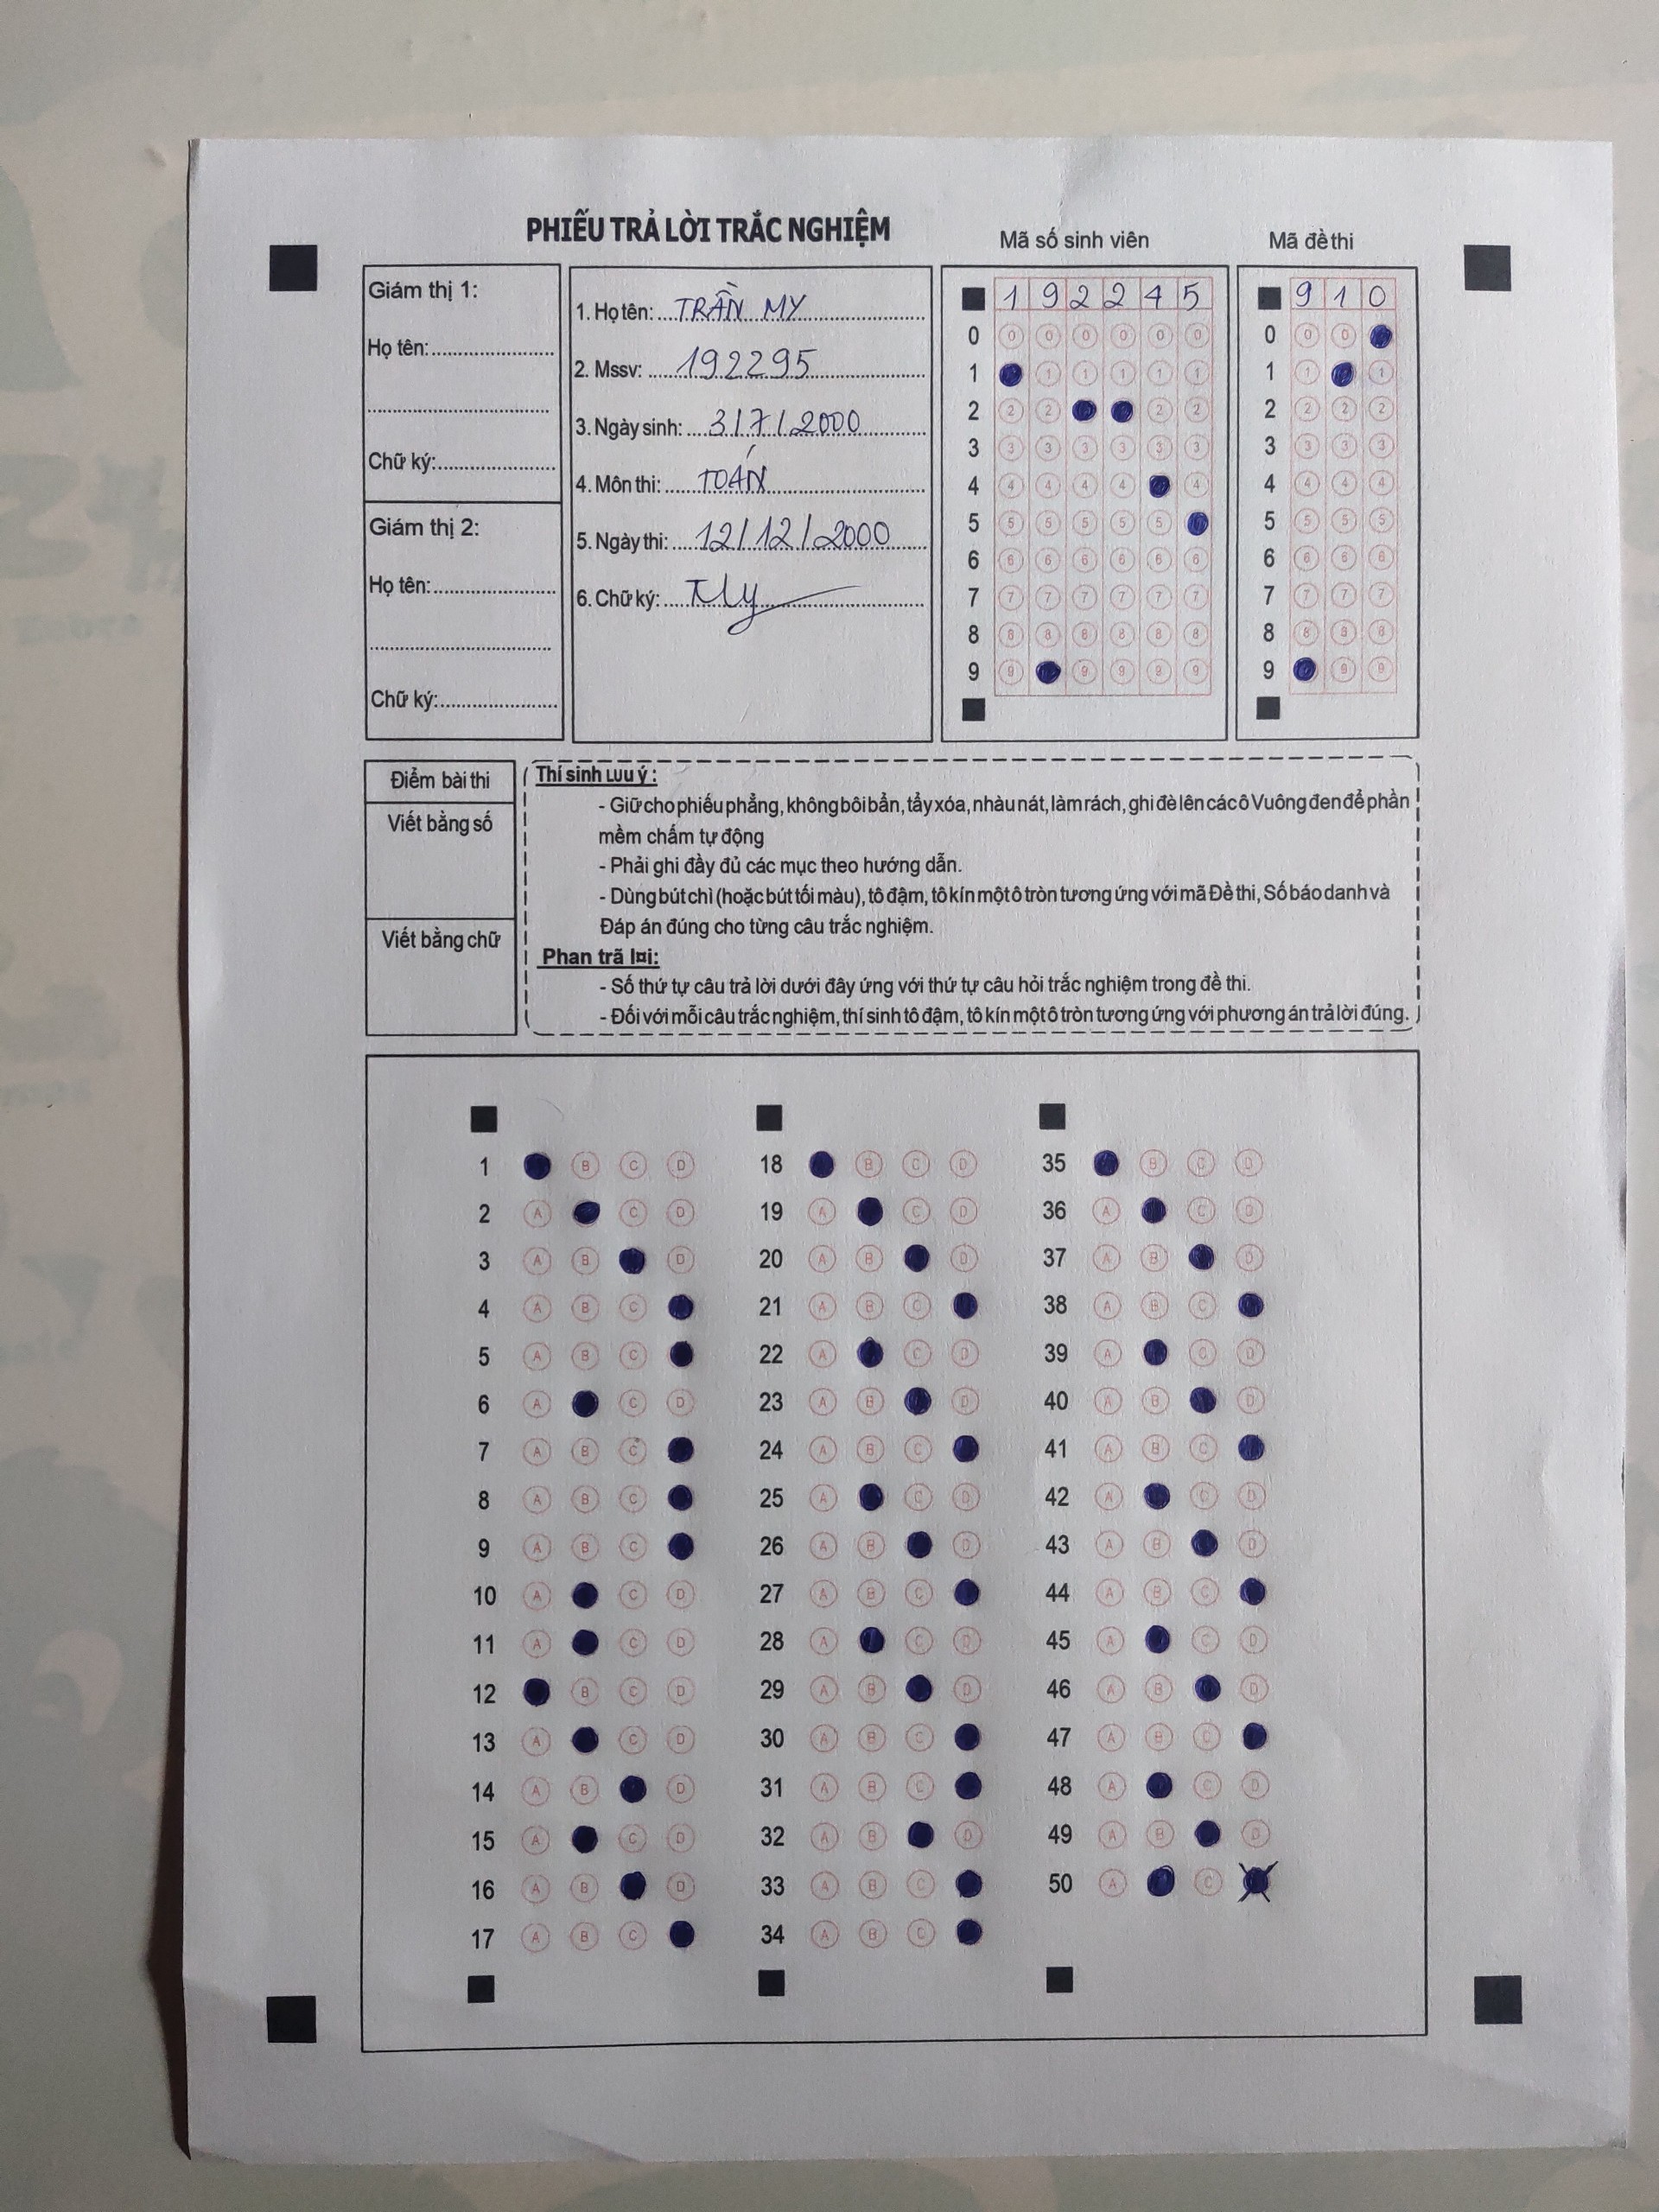 PHIẾU TRẢ LỜI TRẮC NGHIỆM
Mã số sinh viên
Mã đề thi
Giám thị 1:
Họ tên:
Chữ ký:
Giám thị 2:
Họ tên:
Chữ ký:
1. Họ tên: TRẦN MY
2. Mssv: 192295
3. Ngày sinh: 3/7/2000
4. Môn thi: TOÁN
5. Ngày thi: 12/12/2000
6. Chữ ký: TMy
1 9 2 2 4 5
0 0 0 0 0 0 0
1 1 1 1 1 1
2 2 2 2 2
3 3 3 3 3 3 3
4 4 4 4 4 4
5 5 5 5 5 5
6 6 6 6 6 6 6
7 7 7 7 7 7 7
8 8 8 8 8 8 8
9 9 9 9 9 9
9 1 0
0 0 0
1 1 1
2 2 2 2
3 3 3 3
4 4 4 4
5 5 5 5
6 6 6 6
7 7 7 7
8 8 8 8
9 9 9
Điểm bài thi
Viết bằng số
Viết bằng chữ
Thí sinh Lưu ý :
- Giữ cho phiếu phẳng, không bôi bẩn, tẩy xóa, nhàu nát, làm rách, ghi đè lên các ô Vuông đen để phần
mềm chấm tự động
- Phải ghi đầy đủ các mục theo hướng dẫn.
- Dùng bút chì (hoặc bút tối màu), tô đậm, tô kín một ô tròn tương ứng với mã Đề thi, Số báo danh và
Đáp án đúng cho từng câu trắc nghiệm.
Phan trã l¤i:
- Số thứ tự câu trả lời dưới đây ứng với thứ tự câu hỏi trắc nghiệm trong đề thi.
- Đối với mỗi câu trắc nghiệm, thí sinh tô đậm, tô kín một ô tròn tương ứng với phương án trả lời đúng.
1 B C D
2 A C D
3 A B D
4 A B C
5 A B C
6 A C D
7 A B C
8 A B C
9 A B C
10 A C D
11 A C D
12 B C D
13 A C D
14 A B D
15 A C D
16 A B D
17 A B C
18 B C D
19 A C D
20 A B D
21 A B C
22 A C D
23 A B D
24 A B C
25 A C D
26 A B D
27 A B C
28 A C D
29 A B D
30 A B C
31 A B C
32 A B D
33 A B C
34 A B C
35 B C D
36 A C D
37 A B D
38 A B C
39 A C D
40 A B D
41 A B C
42 A C D
43 A B D
44 A B C
45 A C D
46 A B D
47 A B C
48 A C D
49 A B D
50 A C